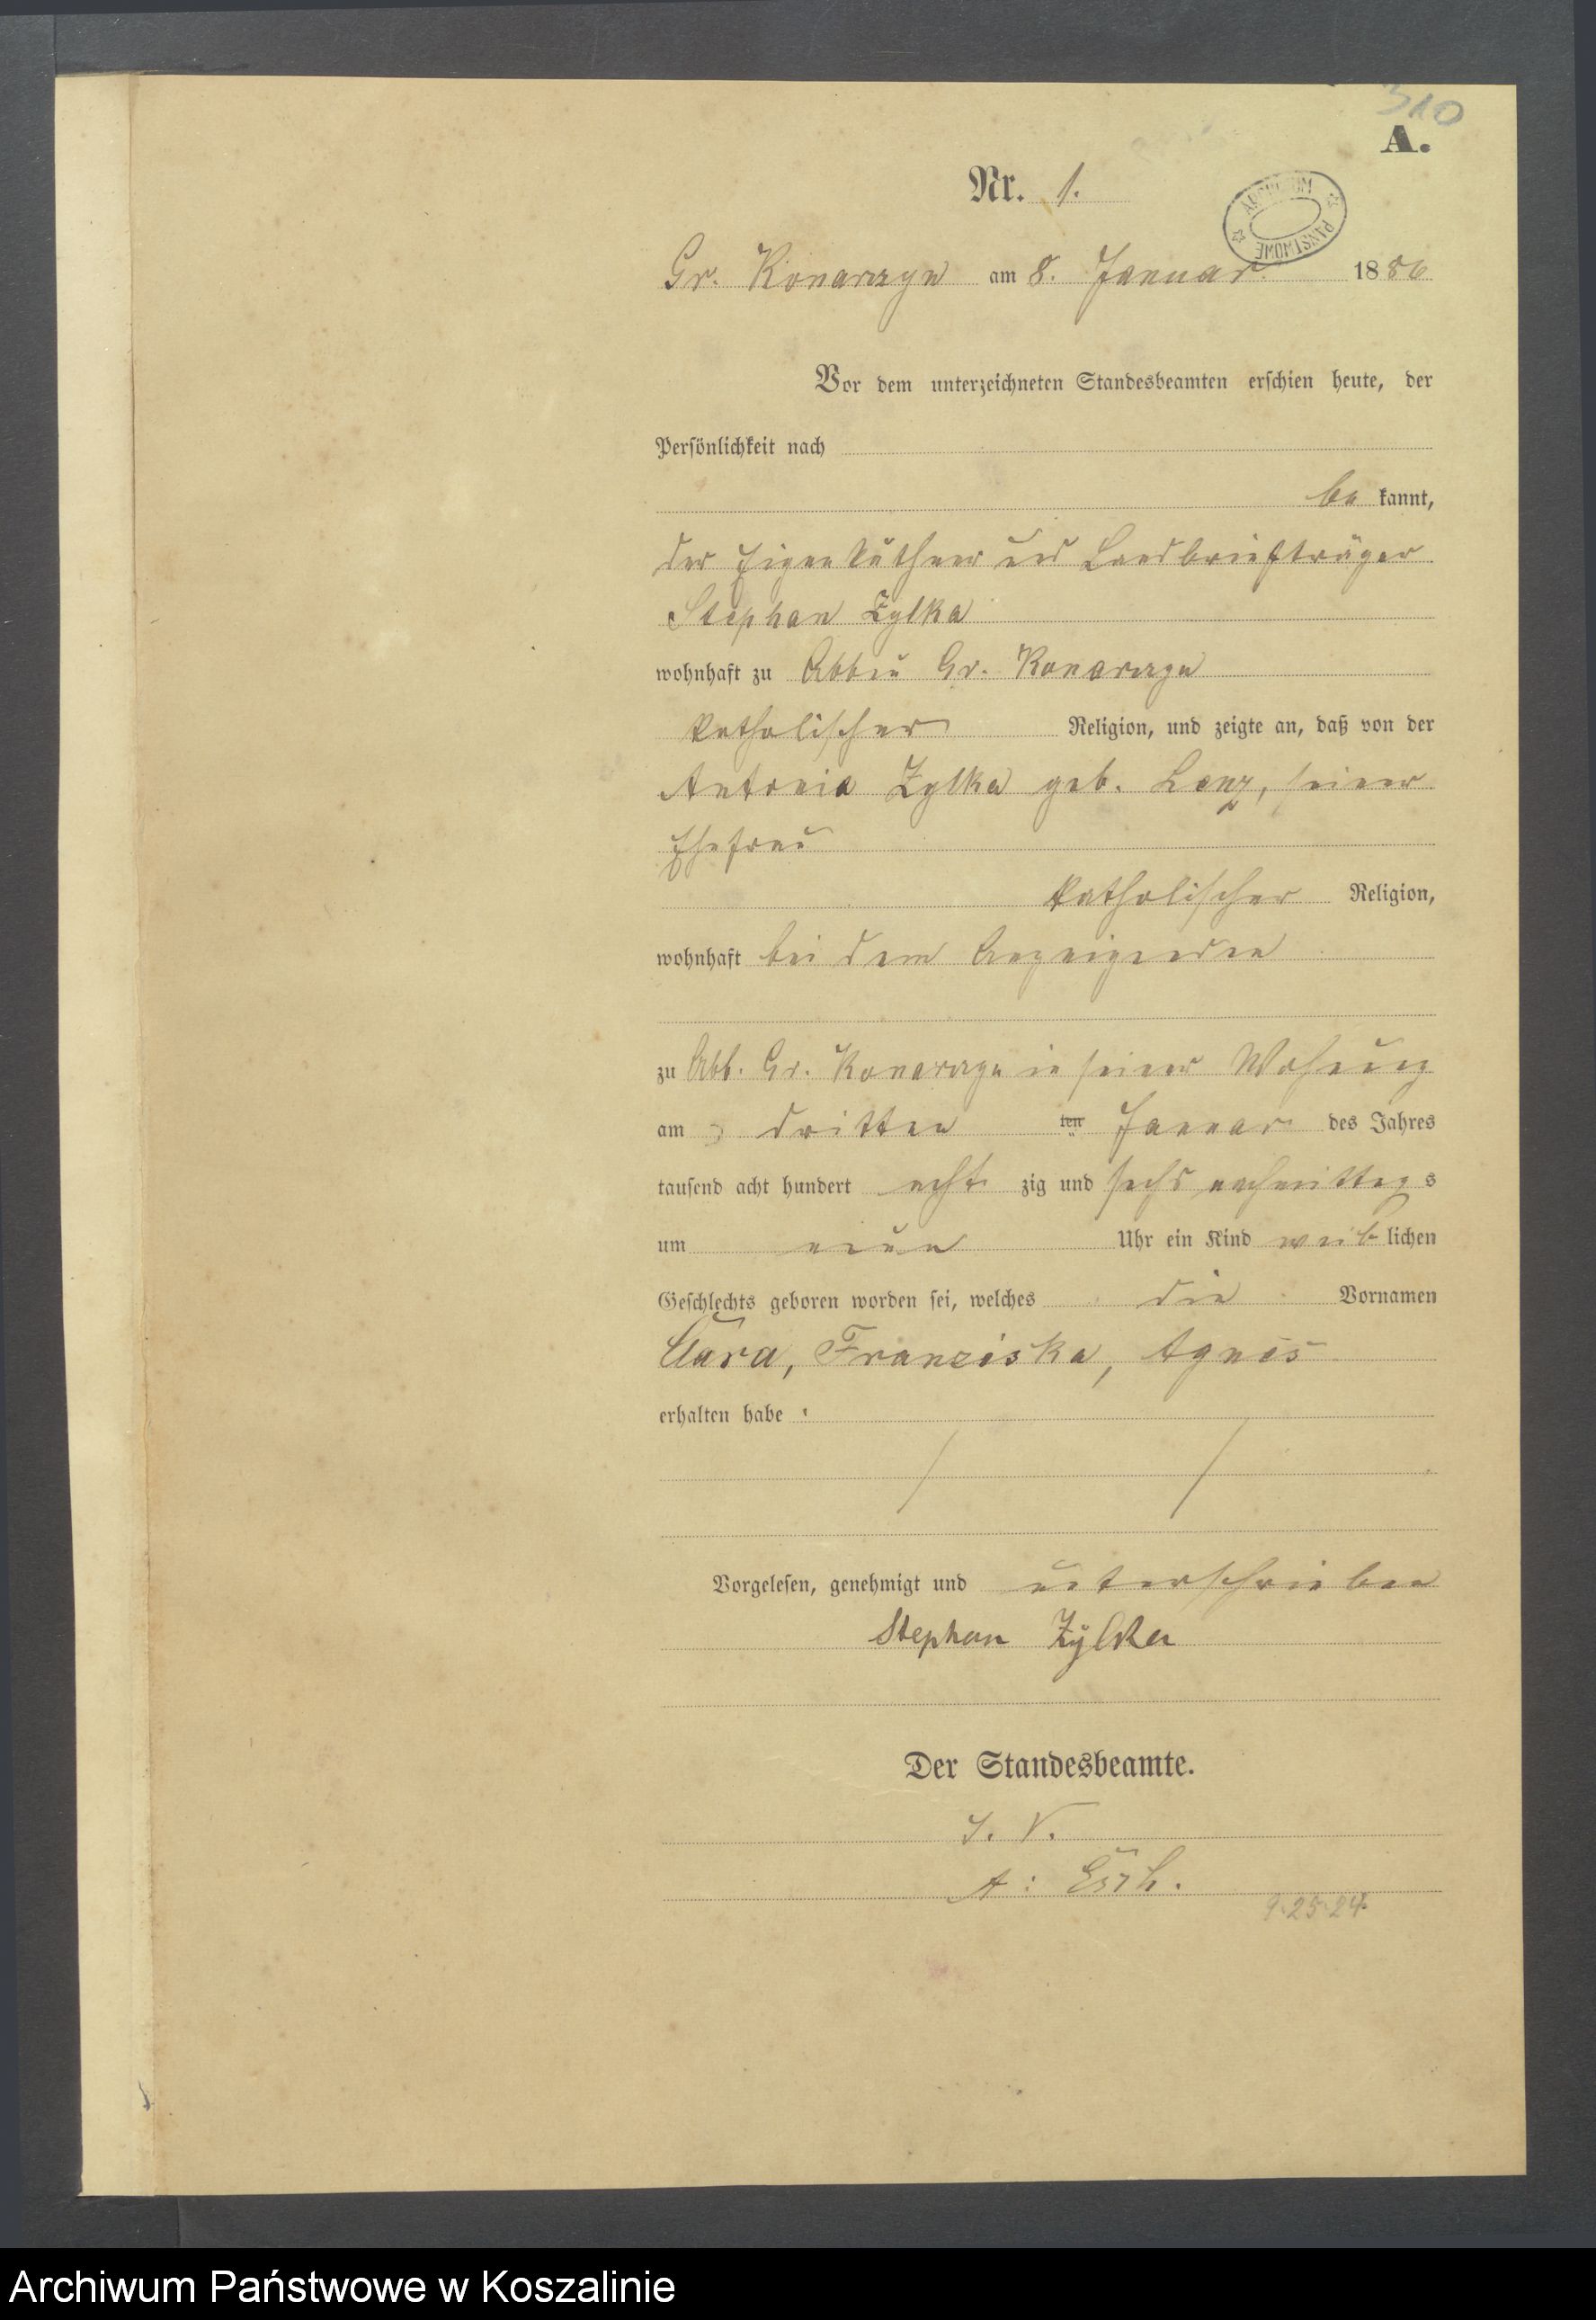 310
A.
Nr. 1.
ARCHIWUM PAŃSTWOWE
Gr. Konarczyn am 8. Januar 1886
Vor dem unterzeichneten Standesbeamten erschien heute, der
Persönlichkeit nach
be kannt,
der Eigenkäthner und Landbriefträger
Stephan Zylka
wohnhaft zu Abbau Gr. Konarczyn
katholischer Religion, und zeigte an, daß von der
Antonia Zylka geb. Lenz, seiner
Ehefrau
katholischer Religion,
wohnhaft bei dem Anzeigenden
zu Abb. Gr. Konarczyn in seiner Wohnung
am dritten ten Januar des Jahres
tausend acht hundert acht zig und sechs nachmittag s
um neun Uhr ein Kind weib lichen
Geschlechts geboren worden sei, welches die Vornamen
Clara, Franziska, Agnes
erhalten habe
Vorgelesen, genehmigt und unterschrieben
Stephan Zylka
Der Standesbeamte.
I. V.
9.25.24.
Archiwum Państwowe w Koszalinie